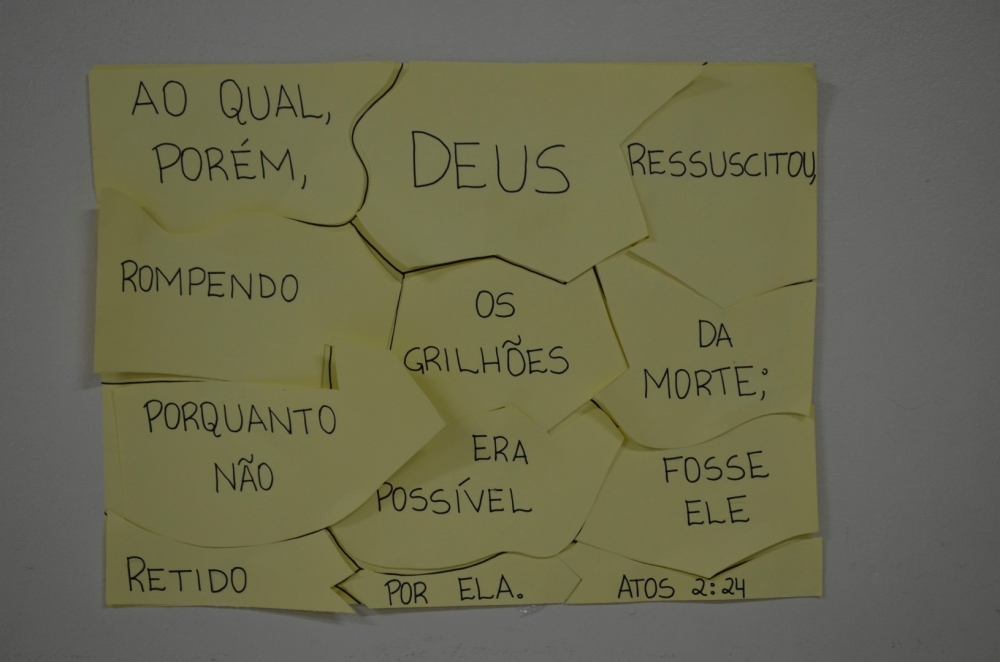 AO QUAL,
PORÉM,
DEUS
RESSUSCITOU,
ROMPENDO
OS
GRILHÕES
DA
MORTE;
PORQUANTO
NÃO
ERA
POSSÍVEL
FOSSE
ELE
RETIDO
POR ELA.
ATOS 2:24